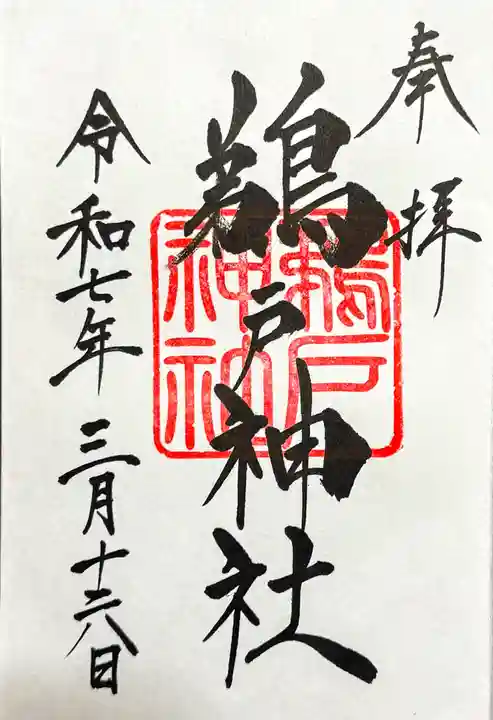 奉拝
鵜戸神社
鵜戸
神社
令和七年三月十六日